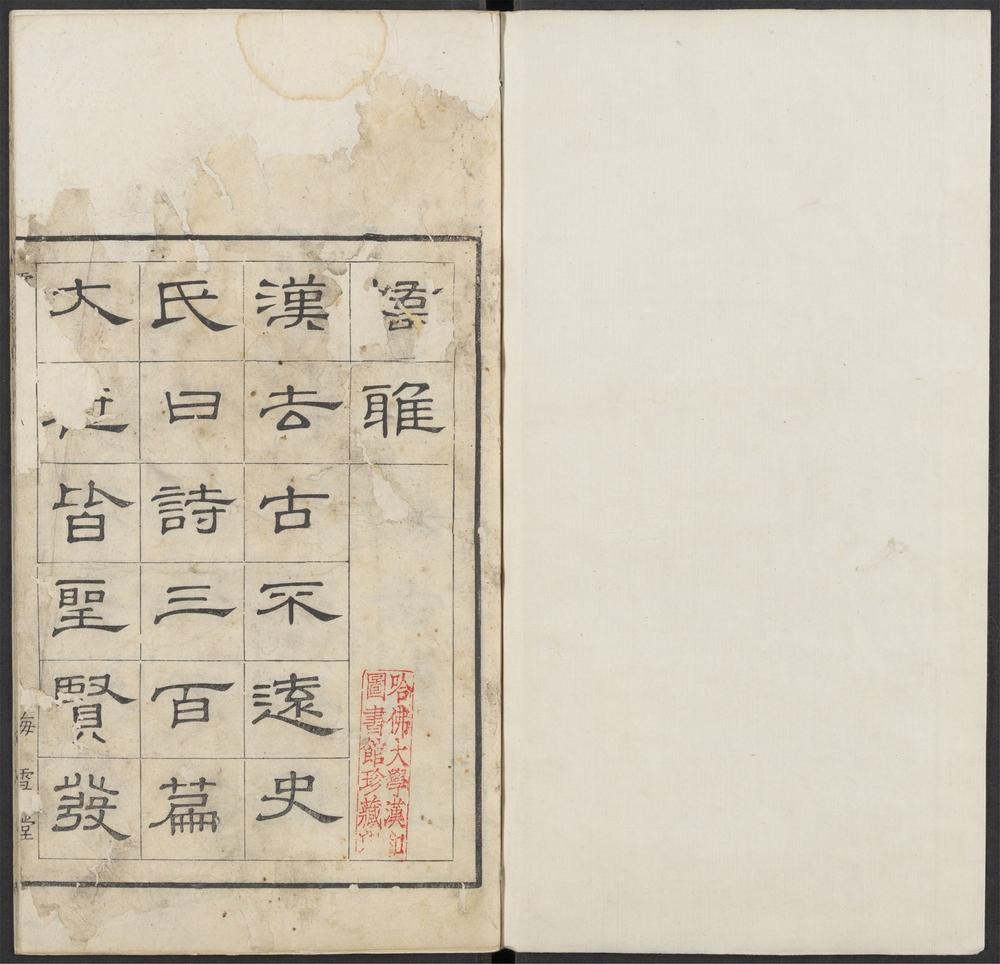 雎
漢去古不遠史
氏曰詩三百篇
大皆聖賢發
哈佛大學漢和
圖書館珍藏印
雪堂